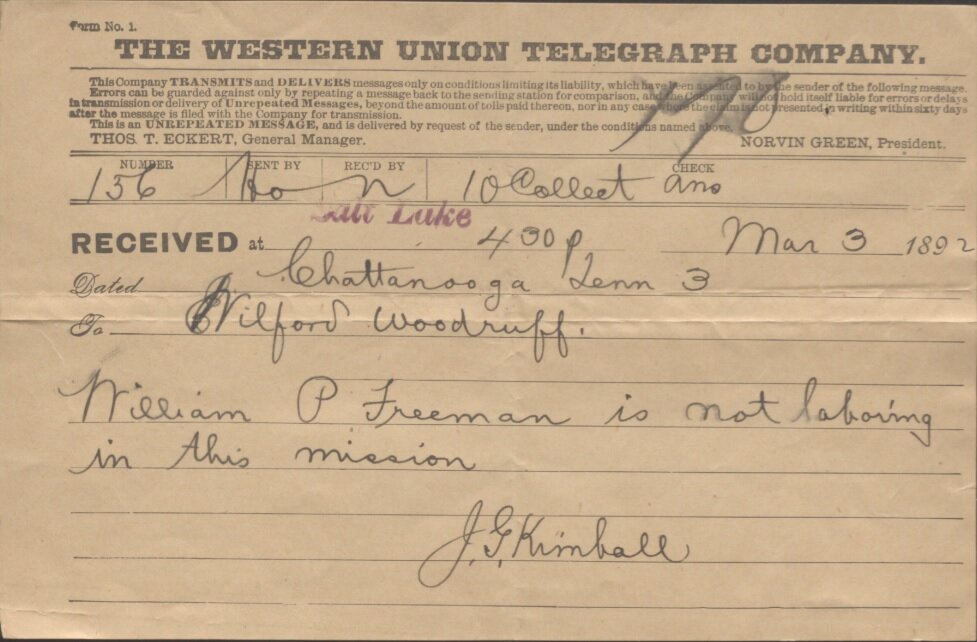 Form No. 1.
THE WESTERN UNION TELEGRAPH COMPANY.
This Company TRANSMITS and DELIVERS messages only on conditions limiting its liability, which have been assented to by the sender of the following message.
Errors can be guarded against only by repeating a message back to the sending station for comparison, and the Company will not hold itself liable for errors or delays
in transmission or delivery of Unrepeated Messages, beyond the amount of tolls paid thereon, nor in any case where the claim is not presented in writing within sixty days
after the message is filed with the Company for transmission.
This is an UNREPEATED MESSAGE, and is delivered by request of the sender, under the conditions named above.
THOS. T. ECKERT, General Manager. NORVIN GREEN, President.
NUMBER SENT BY REC'D BY CHECK
156 Ho n 10 Collect Ans
Salt Lake
RECEIVED at 430p Mar 3 1892
Dated Chattanooga Tenn 3
To Wilford Woodruff.
William P Freeman is not laboring
in this mission
J. G. Kimball